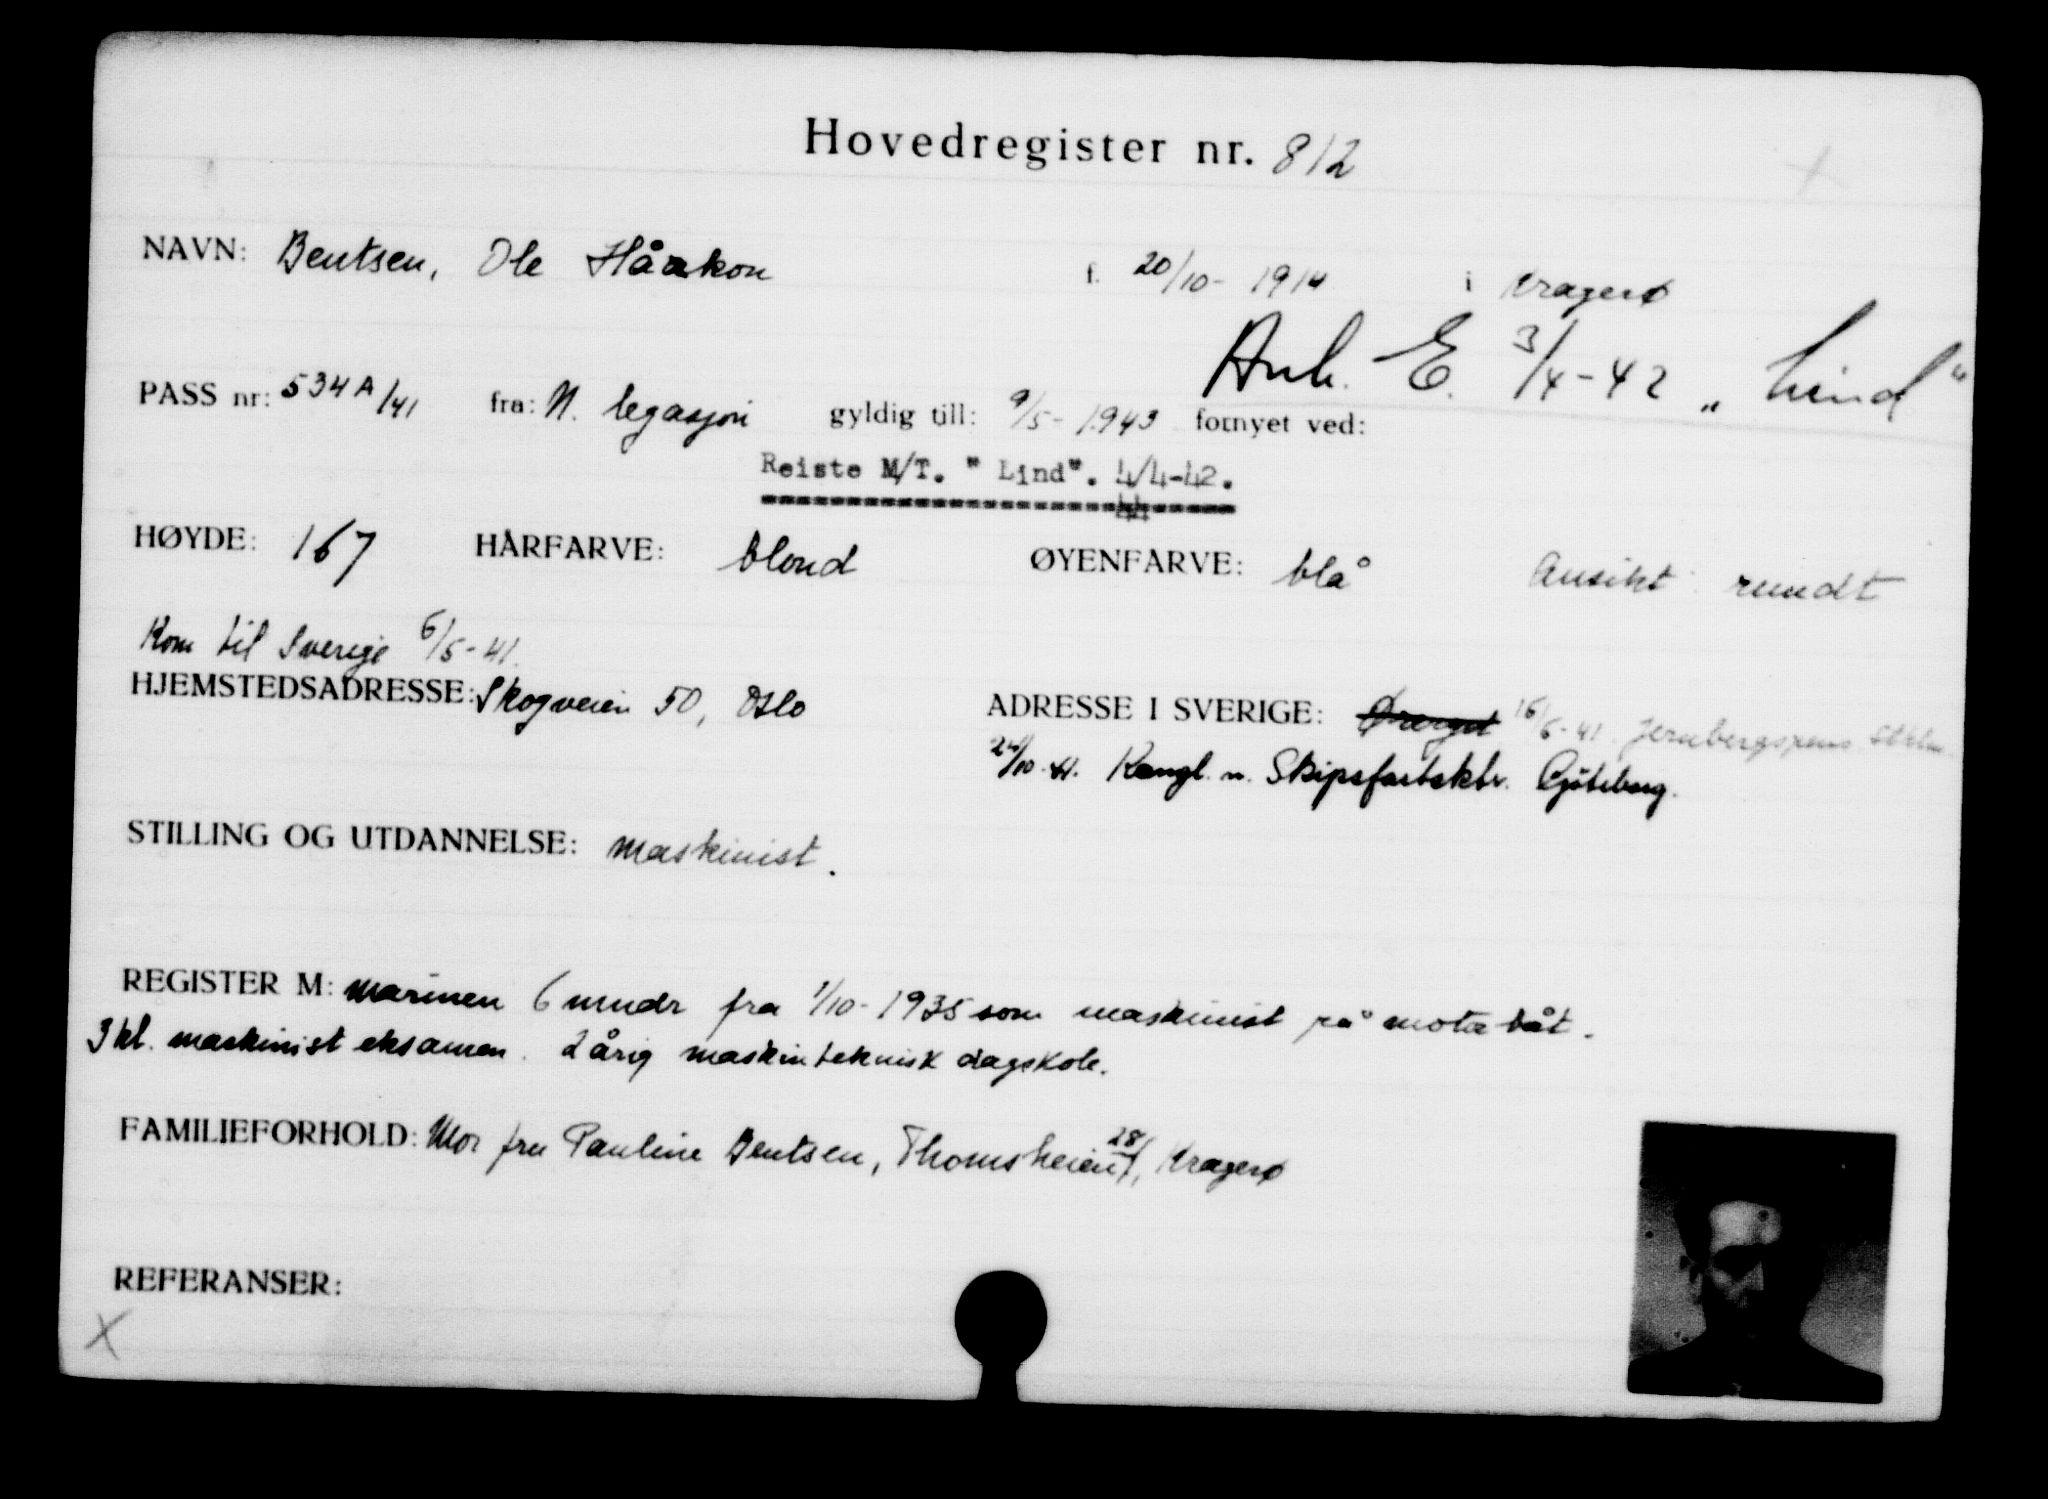 Hovedregister nr. 812
NAVN: Bentsen, Ole Håakon f. 20/10 - 1914 i Kragerø
Ank. E. 3/4-42 „Lind"
PASS nr: 534A/41 fra: N. legasjon gyldig till: 9/5 - 1943 fornyet ved:
Reiste M/T. " Lind". 4/4-42.
HØYDE: 167 HÅRFARVE: blond ØYENFARVE: blå Ansikt rundt
Kom til Sverige 6/5-41.
HJEMSTEDSADRESSE: Skogveien 50, Oslo ADRESSE I SVERIGE: 16/6-41.
24/10-41. Kongl. n. Skipsfartsktr. Gøteborg.
STILLING OG UTDANNELSE: maskinist.
REGISTER M: marinen 6 mndr fra 1/10 - 1935 som maskinist på motorbåt.
3 kl. maskinist eksamen. 2 årig maskinteknisk dagskole.
FAMILIEFORHOLD: Mor fru Pauline Bentsen, Thomsheien 28, Kragerø
REFERANSER:
X